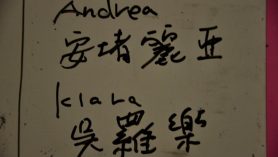 Andrea
安堵麗亞
klara
吳羅樂